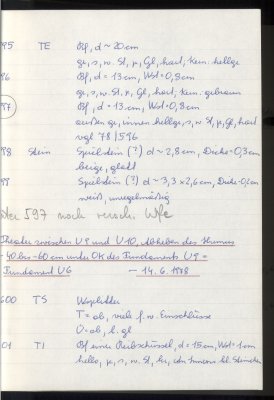 95 TE Bf, d ~ 20 cm
gr, s, w. St, µ, Gl, hart, Kern: hellgr
96 Bf, d = 13 cm, Wst = 0,8 cm
gr, s, w. St, µ, Gl, hart, Kern: graubraun
97 Bf, d = 13 cm, Wst = 0,8 cm
außen gr, innen hellgr, s, w. St, µ, Gl, hart
vgl 78/596
98 Stein Spielstein (?) d ~ 2,8 cm, Dicke = 0,3 cm
beige, glatt
99 Spielstein (?) ~ 3,3 x 2,6 cm, Dicke
weiß, unregelmäßig
597 noch
Theater zwischen U9 und U10, Abheben des Humus
- 40 bis - 60 cm unter OK des Fundaments U9 =
Fundament U6 — 14.6.1978
600 TS
T = ob, viele f. w. Einschlüsse
Ü = ob, b. gl
01 TI Bf einer Reibschüssel, d = 15 cm, Wst = 1 cm
s, w. St,